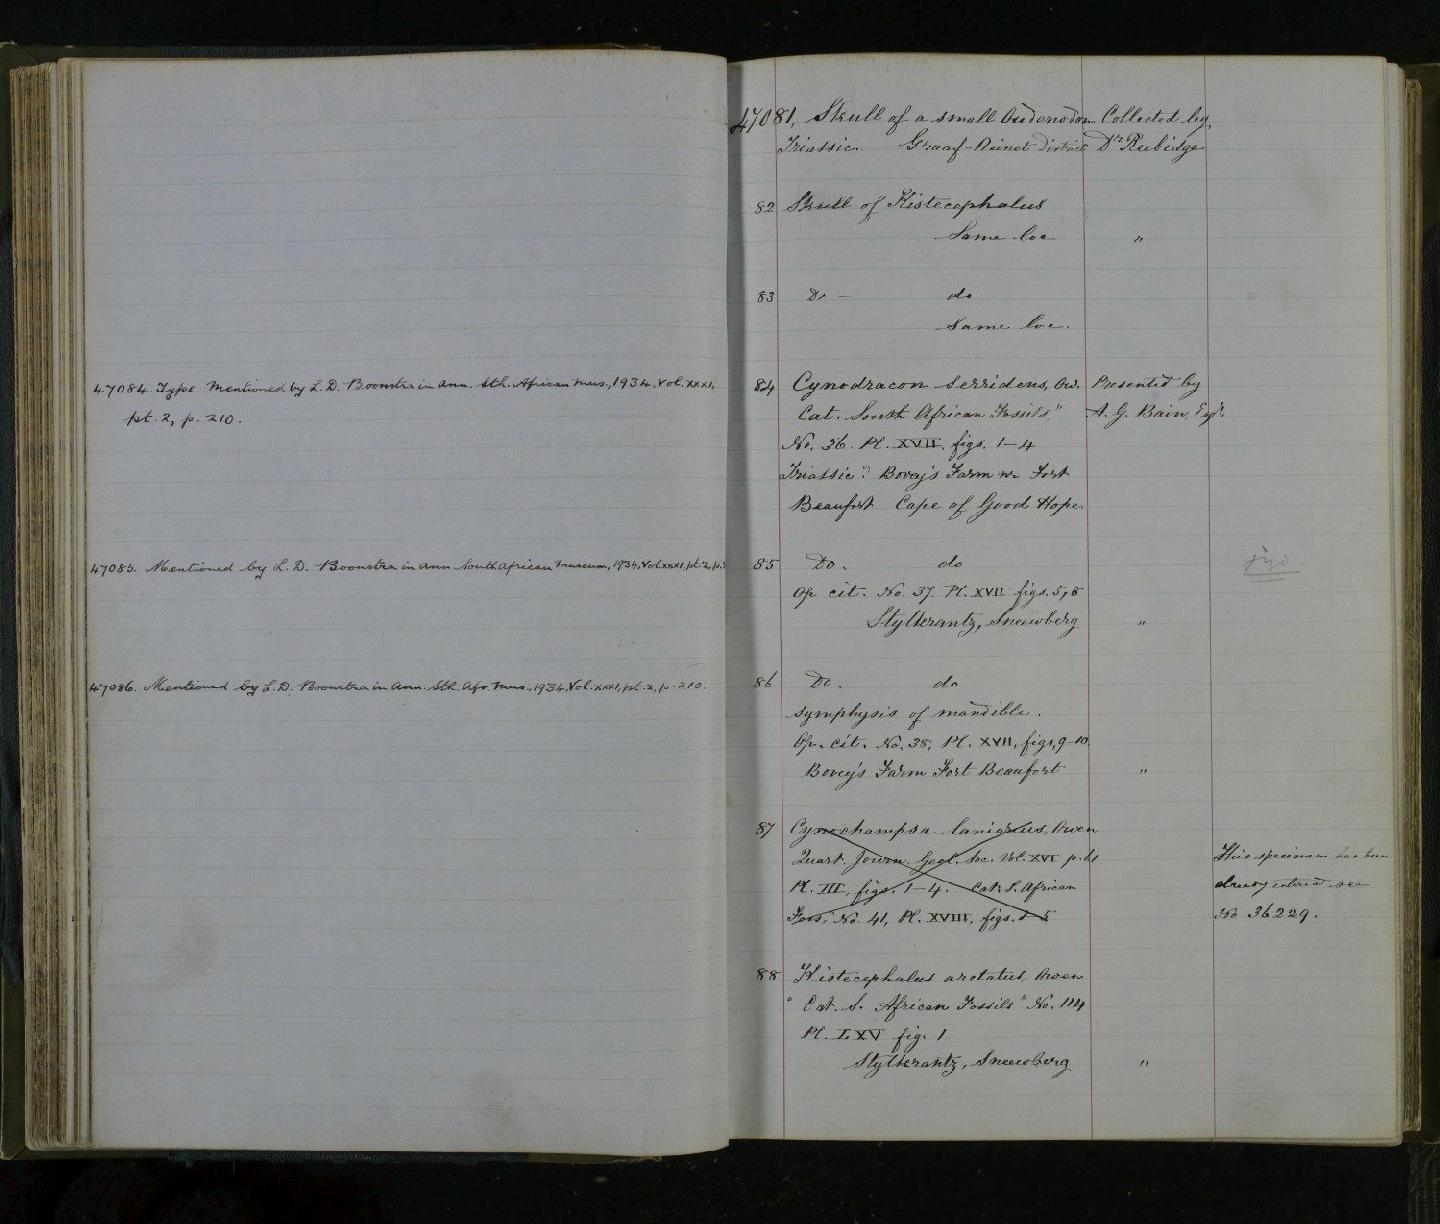 47084. Type Mentioned by L. D. Boonstra in Ann. Sth. African Mus., 1934, Vol. XXXI,
pt. 2, p. 210.
47085. Mentioned by L. D. Boonstra in Ann. South African Museum, 1934, Vol. XXXI, pt. 2, p.
47086. Mentioned by L. D. Boonstra in Ann. Sth. Afr. Mus., 1934, Vol. XXXI, pt. 2, p. 210.
47081, Skull of a small Oudenodon Collected by
Triassic. Graaf-Reinet District Dr Rubidge
82 Skull of Kistecephalus
Same loc "
83 Do - do
Same loc.
84 Cynodracon serridens, Ow. Presented by
Cat. South African Fossils" A. G. Bain, Esqr.
No. 36 Pl. XVII, figs. 1-4
Triassic? Bovey's Farm nr Fort
Beaufort Cape of Good Hope.
85 Do. do
Op cit. No. 37. Pl. XVII figs. 5, 8
Stylkrantz, Sneewberg "
86 Do. do
symphysis of mandible.
Op. cit. No. 38, Pl. XVII, figs, 9-10
Bovey's Farm Fort Beaufort "
87 Cynochampsa laniarius, Owen
Quart. Journ. Geol. Soc. Vol. XVI p. 61 This specimen has been
Pl. III, figs. 1-4. Cat. S. African entered see
Foss, No. 41, Pl. XVIII, figs. 1-5 No 36229.
88 Kistecephalus arctatus, Owen
" Cat. S. African Fossils" No. 114
Pl. LXV fig. 1
Stylkrantz, Sneewberg "